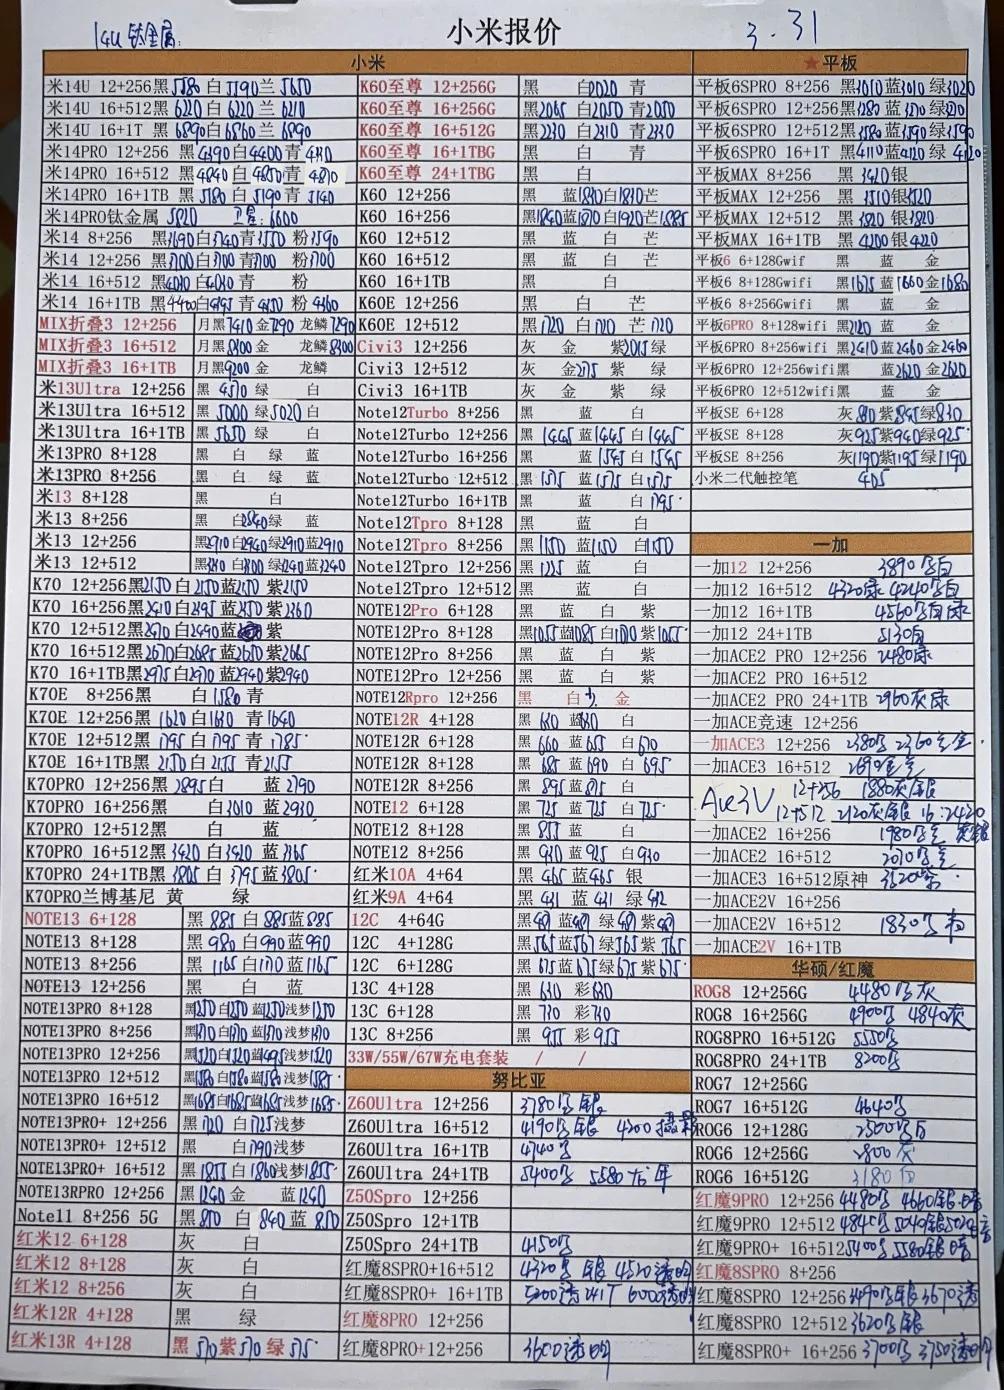 14U 钛金属:
小米报价
3.31
小米
米14U 12+256黑5580 白5590兰5650
米14U 16+512黑6220 白6220 兰6210
米14U 16+1T 黑6890白6860 兰6890
米14PRO 12+256 黑4390白4400青
米14PRO 16+512 黑4840 白4850青4870
米14PRO 16+1TB 黑5180 白5190 青5140
米14PRO钛金属 5820
米14 8+256 黑 白 青 粉
米14 12+256 黑 白 青 粉3700
米14 16+512 黑 白4030 青 粉
米14 16+1TB 黑4400白 青 粉
MIX折叠3 12+256 月黑7410 金7290 龙鳞7290
MIX折叠3 16+512 月黑8300 金 龙鳞8300
MIX折叠3 16+1TB 月黑9200 金 龙鳞
米13Ultra 12+256 黑 4570 绿 白
米13Ultra 16+512 黑 5000 绿5020 白
米13Ultra 16+1TB 黑 5650 绿 白
米13PRO 8+128 黑 白 绿 蓝
米13PRO 8+256 黑 白 绿 蓝
米13 8+128 黑 白
米13 8+256 黑 白2840绿 蓝
米13 12+256 黑2910白2940绿2910蓝2910
米13 12+512 黑 白 绿3240蓝3240
K70 12+256黑2150 白2150蓝2150 紫2150
K70 16+256黑2410 白2395 蓝2350 紫2360
K70 12+512黑2470 白2490蓝 紫
K70 16+512黑2670白2685 蓝2650 紫2665
K70 16+1TB黑2975白2970 蓝2940 紫2940
K70E 8+256黑 白1580 青
K70E 12+256黑 1620 白1630 青1640
K70E 12+512黑 1795 白1795 青1785
K70E 16+1TB黑 2150 白2155 青2155
K70PRO 12+256黑 2895白 蓝 2790
K70PRO 16+256黑 白3010 蓝2930
K70PRO 12+512黑 白 蓝
K70PRO 16+512黑 3420 白3420 蓝3365
K70PRO 24+1TB黑 3805 白3795 蓝3805
K70PRO兰博基尼 黄 绿
NOTE13 6+128 黑 885 白 885蓝885
NOTE13 8+128 黑 980 白990蓝990
NOTE13 8+256 黑 1165 白1170 蓝1165
NOTE13 12+256 黑 白 蓝
NOTE13PRO 8+128 黑1250白1250 蓝1250浅梦1250
NOTE13PRO 8+256 黑1370白1370 蓝1370浅梦1370
NOTE13PRO 12+256 黑1520白1520 蓝1495浅梦1520
NOTE13PRO 12+512 黑1580白1580 蓝1580浅梦1585
NOTE13PRO 16+512 黑1685白1685蓝1685浅梦1685
NOTE13PRO+ 12+256 黑 1720 白1725浅梦
NOTE13PRO+ 12+512 黑 白1790浅梦
NOTE13PRO+ 16+512 黑 1855 白1860浅梦1855
NOTE13RPRO 12+256 黑 1240 金 蓝1240
Note11 8+256 5G 黑 850 白 840 蓝 850
红米12 6+128 灰 白
红米12 8+128 灰 白
红米12 8+256 灰 白
红米12R 4+128 黑 绿
红米13R 4+128 黑 570 紫570 绿 575
K60至尊 12+256G 黑 白2020 青
K60至尊 16+256G 黑2065 白2050 青2050
K60至尊 16+512G 黑2230 白2310 青2330
K60至尊 16+1TBG 黑 白 青
K60至尊 24+1TBG 黑 白
K60 12+256 黑 蓝1830白1830芒
K60 16+256 黑1840蓝1870白1920芒1885
K60 12+512 黑 蓝 白 芒
K60 16+512 黑 蓝 白 芒
K60 16+1TB 黑 白
K60E 12+256 黑 白 芒
K60E 12+512 黑1720 白1720 芒1720
Civi3 12+256 灰 金 紫2015绿
Civi3 12+512 灰 金 紫 绿
Civi3 16+1TB 灰 金 紫 绿
Note12Turbo 8+256 黑 蓝 白
Note12Turbo 12+256 黑 1445 蓝1445 白1445
Note12Turbo 16+256 黑 蓝1545 白1545
Note12Turbo 12+512 黑 1575 蓝1575 白1575
Note12Turbo 16+1TB 黑 蓝 白1795
Note12Tpro 8+128 黑 蓝 白
Note12Tpro 8+256 黑 1150 蓝1150 白1150
Note12Tpro 12+256 黑 1225 蓝 白
Note12Tpro 12+512 黑 蓝 白
NOTE12Pro 6+128 黑 蓝 白 紫
NOTE12Pro 8+128 黑1055蓝1085白1070紫1055
NOTE12Pro 8+256 黑 蓝 白 紫
NOTE12Pro 12+256 黑 蓝 白 紫
NOTE12Rpro 12+256 黑 白 金
NOTE12R 4+128 黑 630 蓝630 白
NOTE12R 6+128 黑 660 蓝655 白670
NOTE12R 8+128 黑 685 蓝690 白695
NOTE12R 8+256 黑 895 蓝875 白
NOTE12 6+128 黑 725 蓝725 白725
NOTE12 8+128 黑 855 蓝 白
NOTE12 8+256 黑 930 蓝925 白930
红米10A 4+64 黑 465 蓝465 银
红米9A 4+64 黑 431 蓝 431 绿 432
12C 4+64G 黑 蓝 绿 紫
12C 4+128G 黑565 蓝567 绿565 紫565
12C 6+128G 黑 675 蓝675 绿675 紫675
13C 4+128 黑 630 彩630
13C 6+128 黑 730 彩730
13C 8+256 黑 955 彩955
33W/55W/67W充电套装 / /
努比亚
Z60Ultra 12+256 3780黑 银
Z60Ultra 16+512 4190黑 银 4200摄影
Z60Ultra 16+1TB 4740黑
Z60Ultra 24+1TB 5400黑 5580龙年
Z50Spro 12+256
Z50Spro 12+1TB
Z50Spro 24+1TB 4150黑
红魔8SPRO+16+512 4320黑 银 4520透明
红魔8SPRO+ 16+1TB 5200透 24+T 6000透明
红魔8PRO 12+256
红魔8PRO+12+256 3600透明
★平板
平板6SPRO 8+256 黑3010蓝3010 绿3020
平板6SPRO 12+256黑3280 蓝3270绿3270
平板6SPRO 12+512黑3580蓝3590绿3590
平板6SPRO 16+1T 黑4110蓝4120 绿 4120
平板MAX 8+256 黑 3420银
平板MAX 12+256 黑 3510银3520
平板MAX 12+512 黑 3820 银3820
平板MAX 16+1TB 黑 4200 银4220
平板6 6+128Gwif 黑 蓝 金
平板6 8+128Gwifi 黑1675 蓝1660金1680
平板6 8+256Gwifi 黑 蓝 金
平板6PRO 8+128wifi 黑2120 蓝 金
平板6PRO 8+256wifi 黑2410蓝2460金2460
平板6PRO 12+256wifi黑 蓝2620金2620
平板6PRO 12+512wifi黑 蓝 金
平板SE 6+128 灰810紫845绿830
平板SE 8+128 灰925紫940绿925
平板SE 8+256 灰1190紫1195绿1190
小米二代触控笔 405
一加
一加12 12+256 3890黑白
一加12 16+512 4320绿 4240黑白
一加12 16+1TB 4560黑白绿
一加12 24+1TB 5130白
一加ACE2 PRO 12+256 2480绿
一加ACE2 PRO 16+512
一加ACE2 PRO 24+1TB 2960灰绿
一加ACE竞速 12+256
一加ACE3 12+256 2380黑 2360金
一加ACE3 16+512
Ace3V 12+256 1880灰银
12+512 2120灰银 16:2420
一加ACE2 16+256 1980黑
一加ACE2 16+512 2070黑
一加ACE3 16+512原神 3620紫
一加ACE2V 16+256
一加ACE2V 16+512 1830黑
一加ACE2V 16+1TB
华硕/红魔
ROG8 12+256G 4480黑灰
ROG8 16+256G 4900黑 4840灰
ROG8PRO 16+512G 5550黑
ROG8PRO 24+1TB 8200黑
ROG7 12+256G
ROG7 16+512G 4640黑
ROG6 12+128G 2500黑白
ROG6 12+256G 2800灰
ROG6 16+512G 3180白
红魔9PRO 12+256 4480黑 4660银
红魔9PRO 12+512 4845黑 5040银
红魔9PRO+ 16+512 5400黑 5580银
红魔8SPRO 8+256
红魔8SPRO 12+256 3490黑银3670透
红魔8SPRO 12+512 3620黑银
红魔8SPRO+ 16+256 3700黑 3750透明